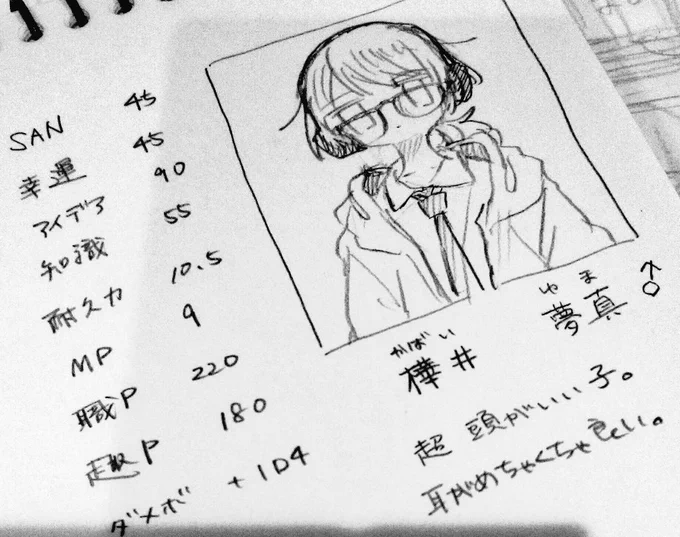 SAN 45
幸運 45
アイデア 90
知識 55
耐久力 10.5
MP 9
職P 220
趣P 180
ダメボ +1D4
かばい ゆま
樺井 夢真 ♂
超頭がいい子。
耳がめちゃくちゃ良い。